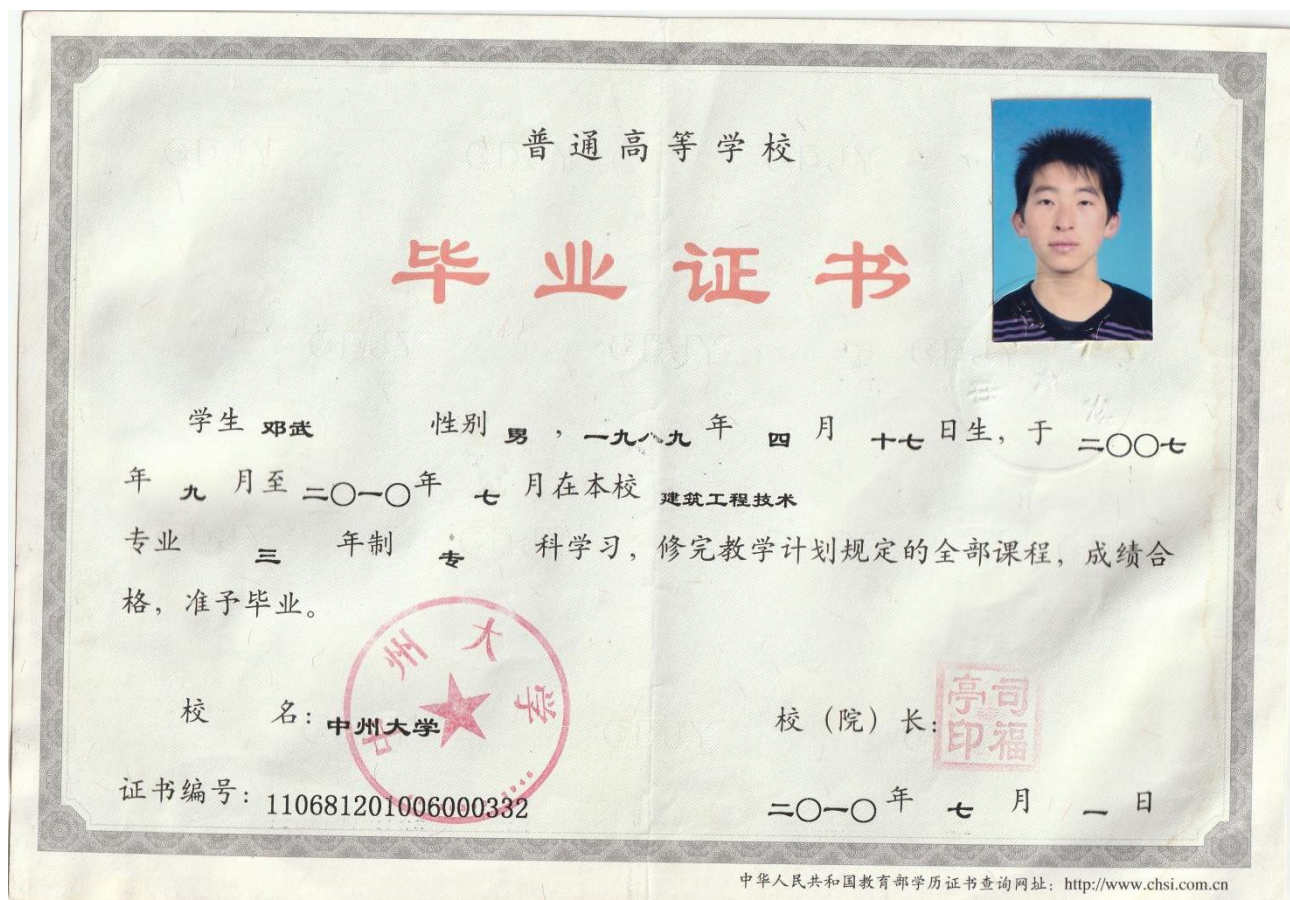 普通高等学校
毕业证书
学生 邓武 性别 男 ，一九八九 年 四 月 十七 日生，于 二〇〇七
年 九 月至 二〇一〇 年 七 月在本校 建筑工程技术
专业 三 年制 专 科学习，修完教学计划规定的全部课程，成绩合
格，准予毕业。
中州大学
校 名：中州大学
校（院）长：
司福亭印
证书编号：110681201006000332
二〇一〇 年 七 月 一 日
中华人民共和国教育部学历证书查询网址：http://www.chsi.com.cn